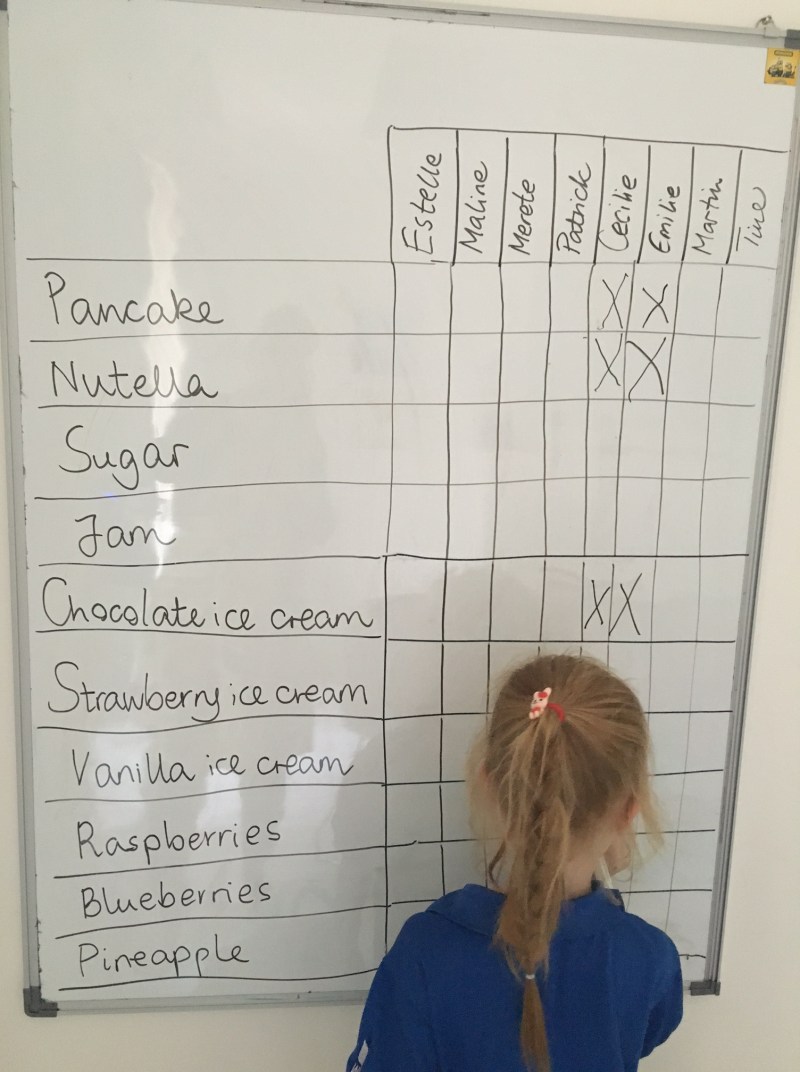 Estelle Maline Merete Patrick Cecilie Emilie Martin Tine
Pancake X X
Nutella X X
Sugar
Jam
Chocolate ice cream X X
Strawberry ice cream
Vanilla ice cream
Raspberries
Blueberries
Pineapple